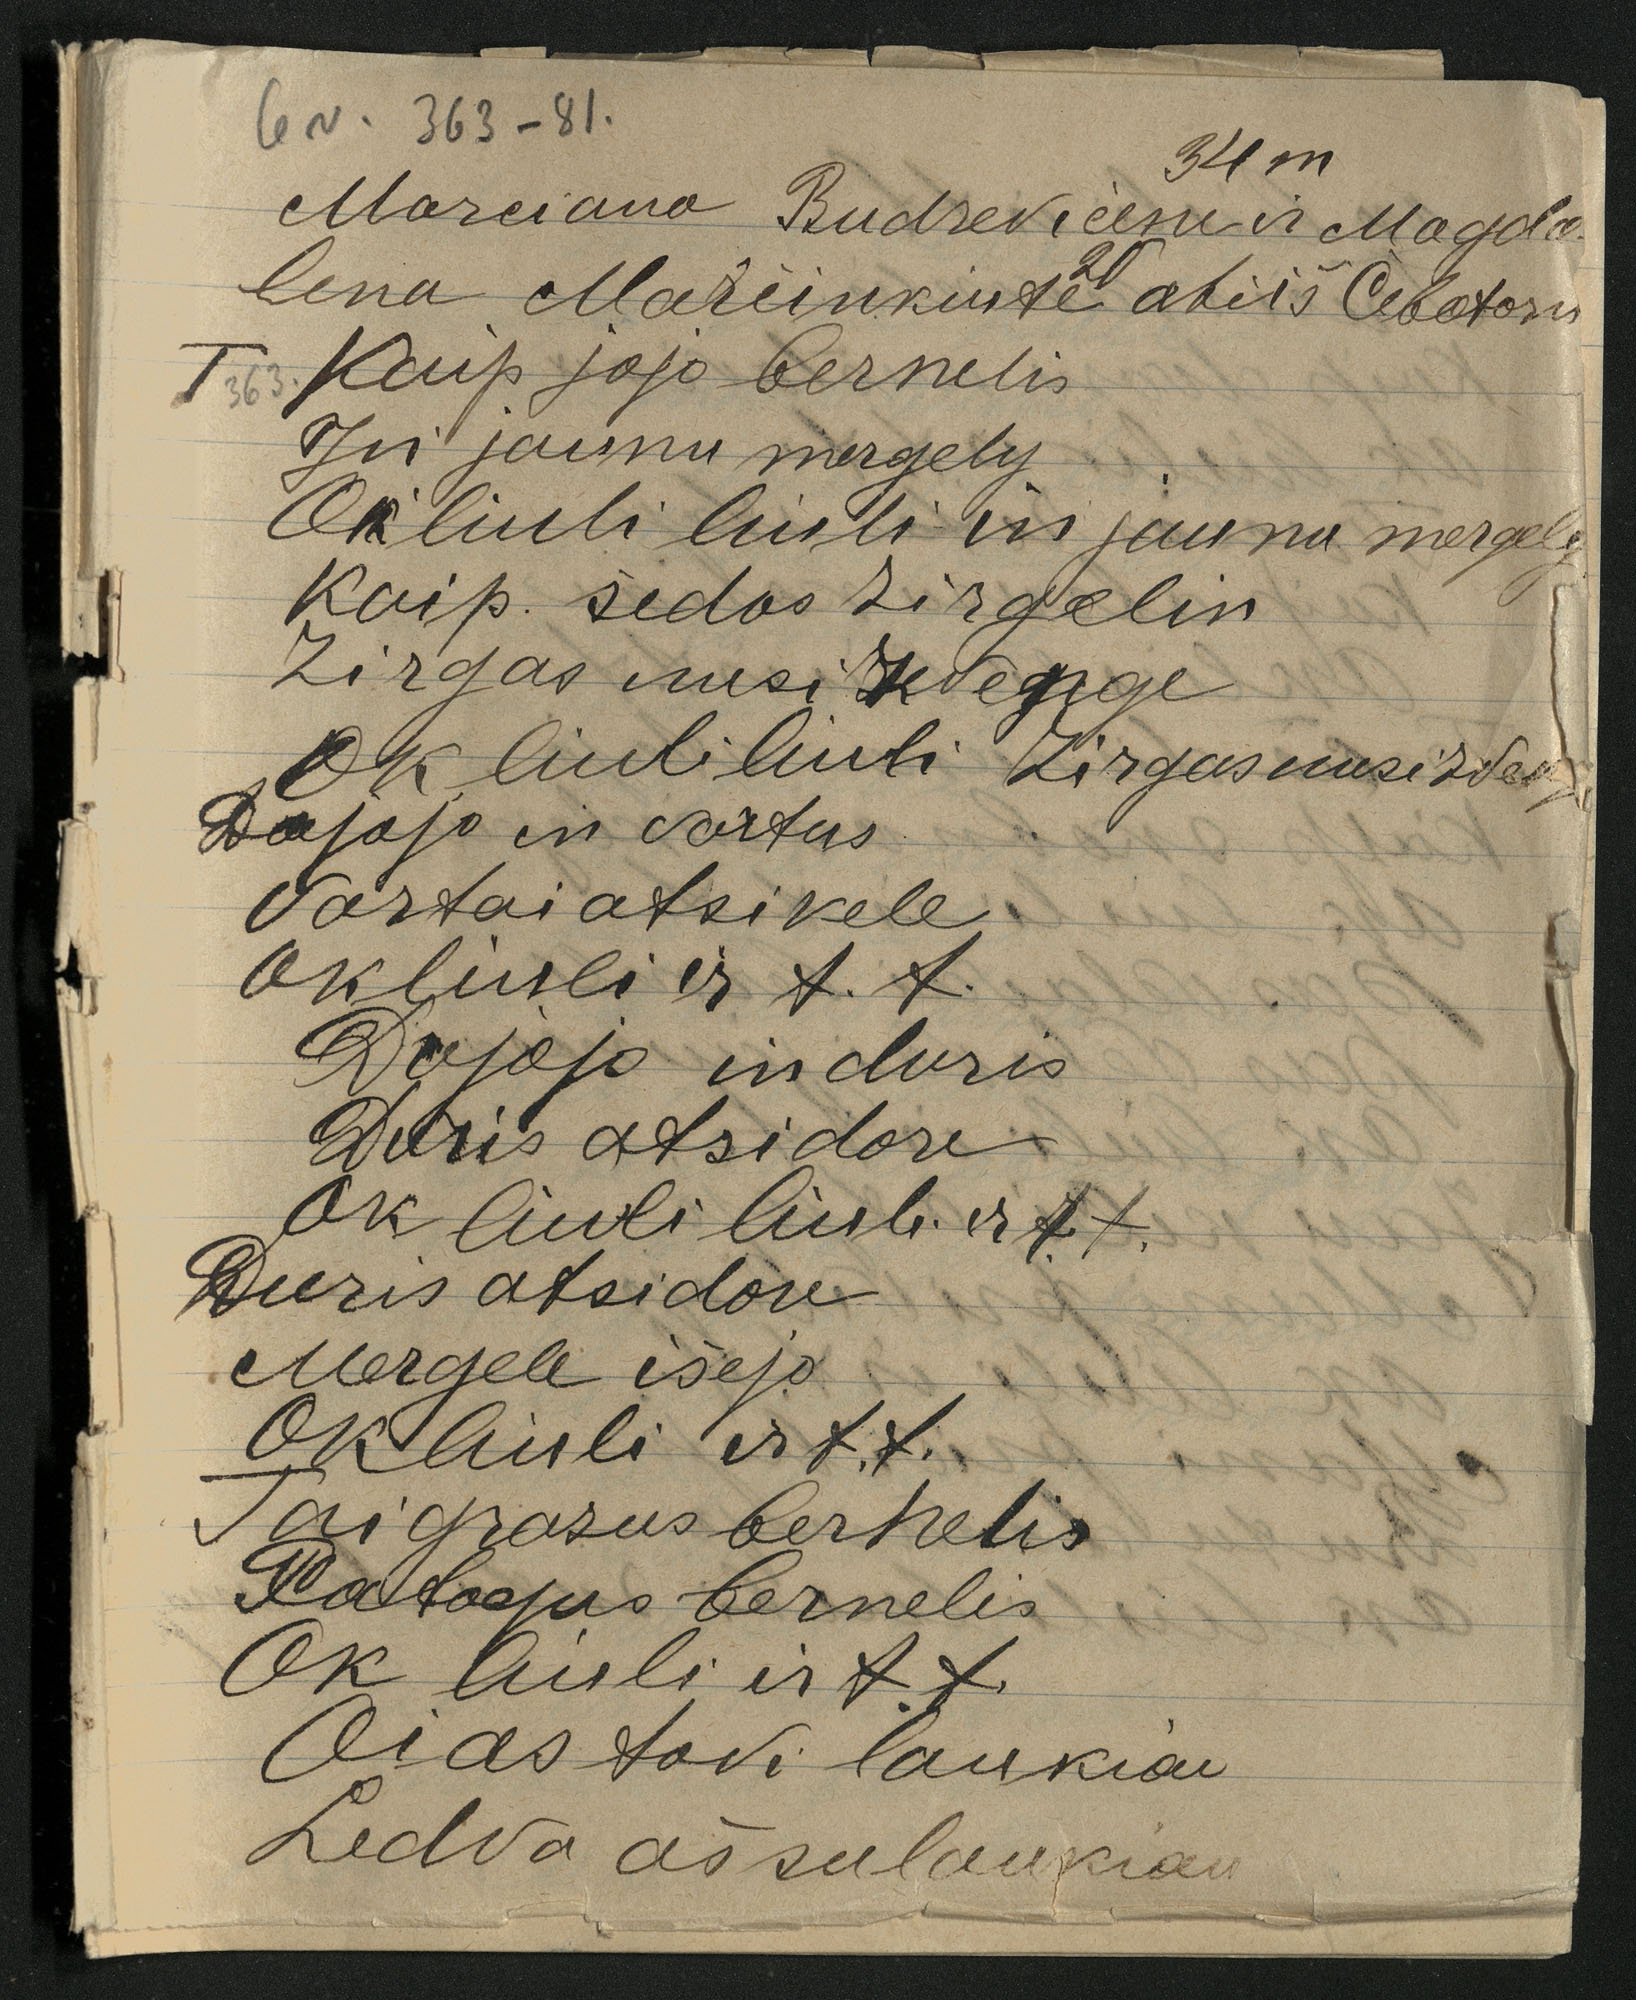 6 v. 363-81.
34 m
Marciana Budrevičene ir Magda-
lena Marčinkiutė 20 abi iš Čebatoru
I 363. Kaip jojo bernelis
In jaunu mergely
Ok liuli liuli in jaunu mergely
Kaip sedos žirgelin
Žirgas nusižvenge
Ok liuli liuli Žirgas nusižveng
Dajojo in vartus
Vartai atsikele
Ok liuli ir t. t.
Dajojo in duris
Duris atsidare
Ok liuli liuli ir t. t.
Duris atsidare
Mergele išejo
Ok liuli ir t. t.
Tai grazus bernelis
Patogus bernelis
Ok liuli ir t. t.
Oi as tavi laukiau
Ledva aš sulaukiau